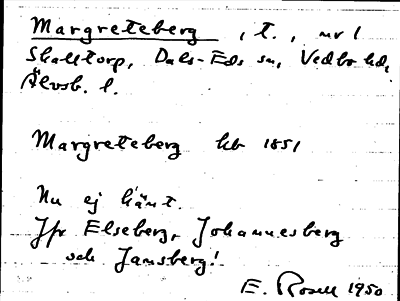 Margreteberg , t., nr 1
Skalltorp, Dals-Eds sn, Vedbo hd,
Älvsb. l.
Margreteberg hb 1851
Nu ej känt.
Jfr Elseberg, Johannesberg
och Jansberg!
E. Rosell 1950